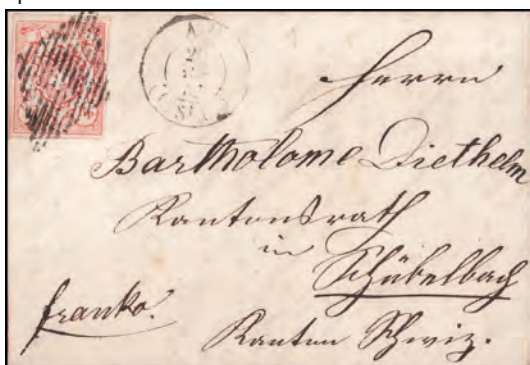 Herrn
Bartholome Diethelm
Kantonsrath
in
Schübelbach
franko.
Kanton Schwiz.